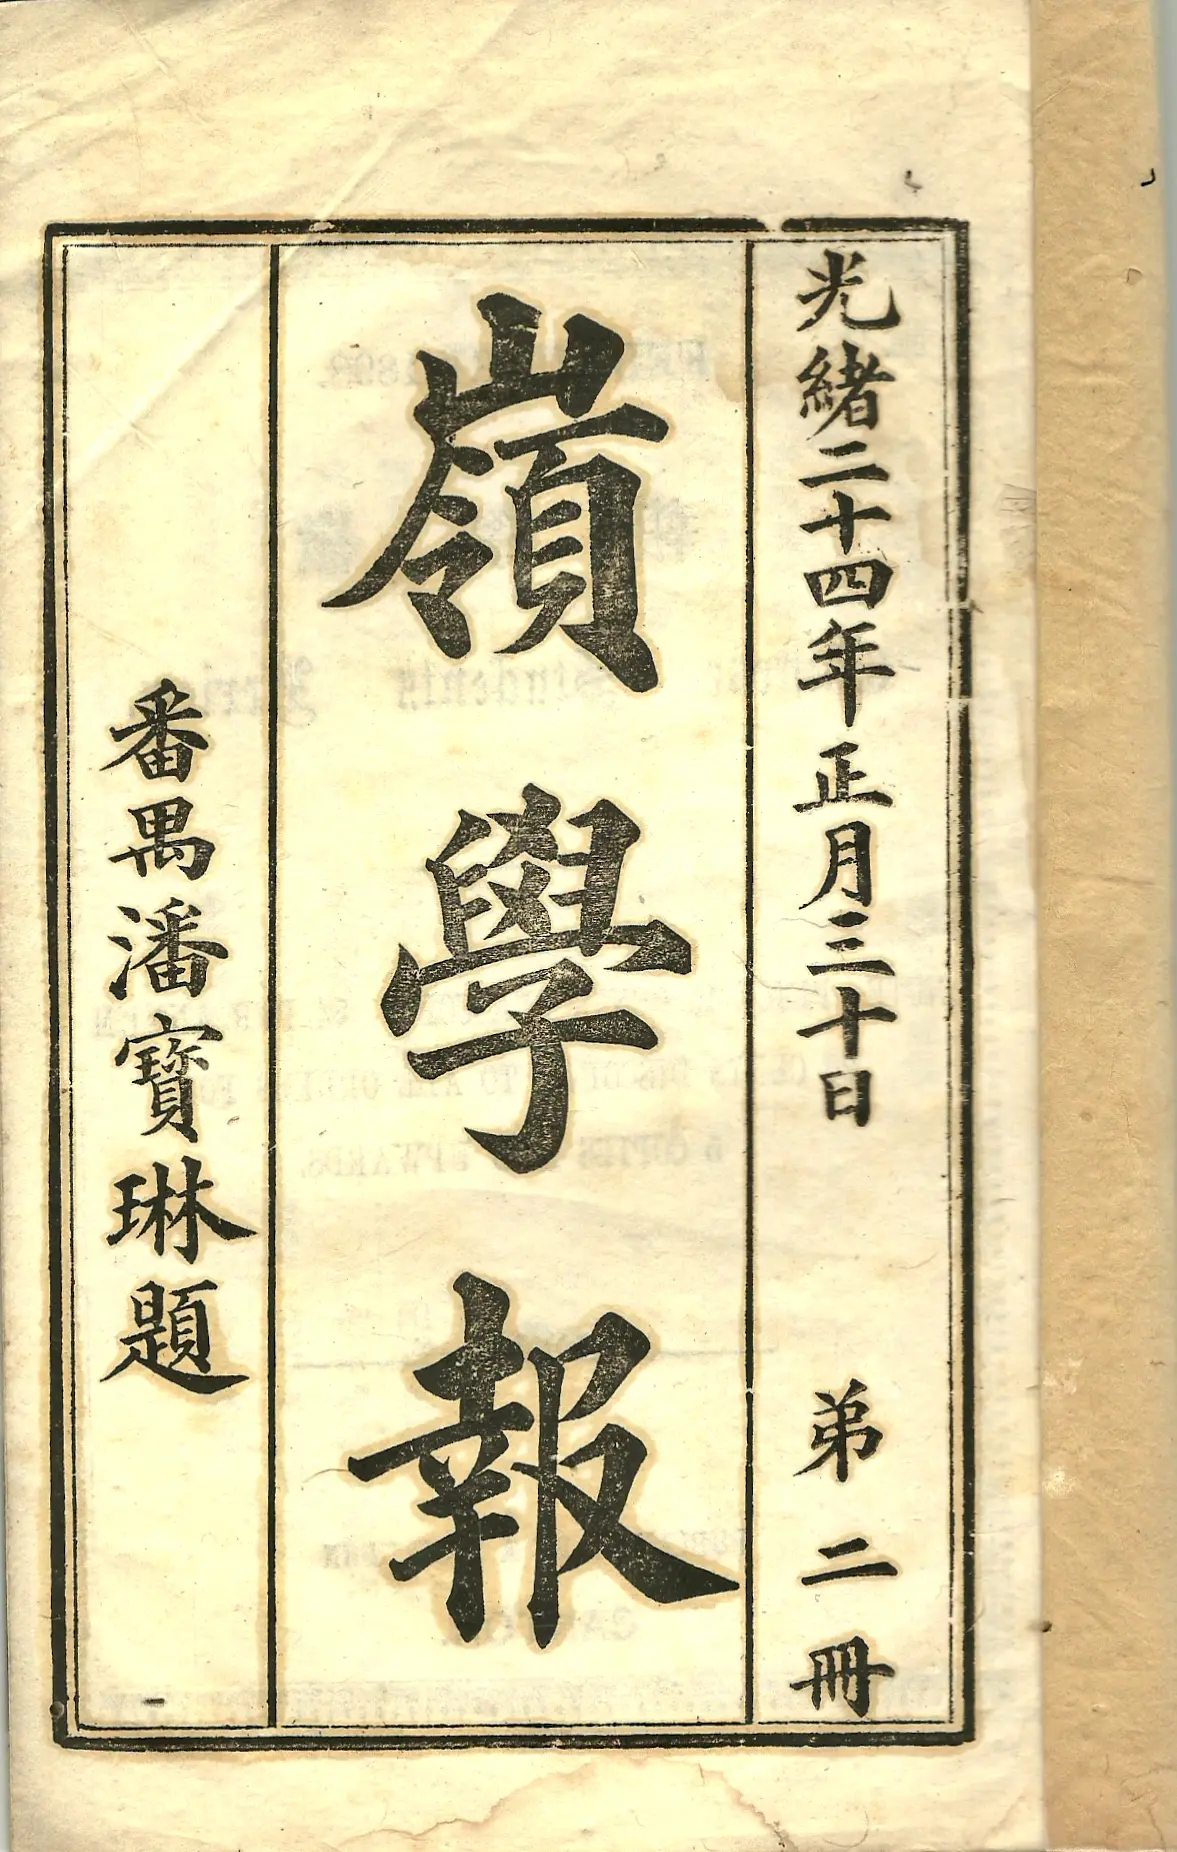 光緒二十四年正月三十日 弟二冊
嶺學報
番禺潘寶琳題